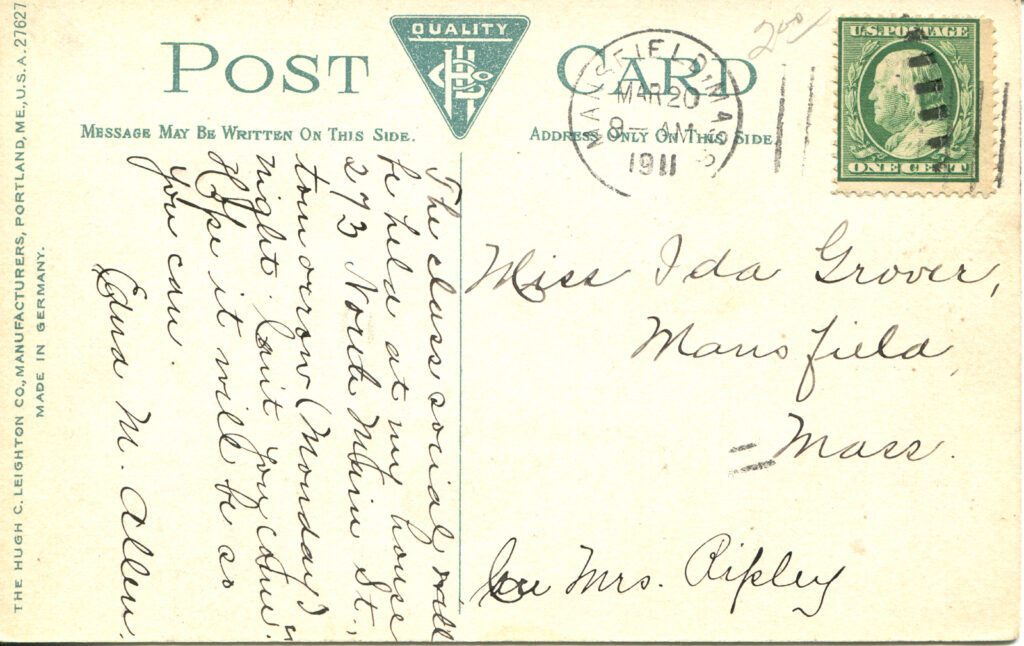 THE HUGH C. LEIGHTON CO., MANUFACTURERS, PORTLAND, ME., U.S.A. 27627
MADE IN GERMANY.
POST CARD
QUALITY
MESSAGE MAY BE WRITTEN ON THIS SIDE.
ADDRESS ONLY ON THIS SIDE.
200
MANSFIELD, MASS
MAR 20
8 — AM
1911
U.S. POSTAGE
ONE CENT
The class social will
be held at my house
273 North Main St.,
tomorrow (Monday)
night. Can't you come?
Hope it will be so
you can.
Edna M. Allen.
Miss Ida Grover,
Mansfield,
Mass.
Mrs. Ripley